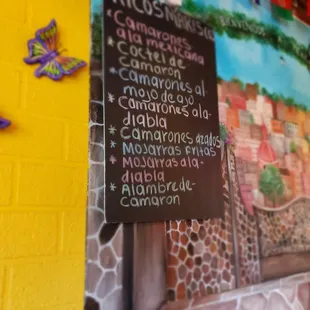 RICOS MARISCO
BIENVENIDOS
* Camarones
ala mexicana
* Coctel de
camaron
* Camarones al
mojo de ajo
* Camarones ala-
diabla
* Camarones azados
* Mojarras fritas
* Mojarras ala-
diabla
* Alambre de-
camaron